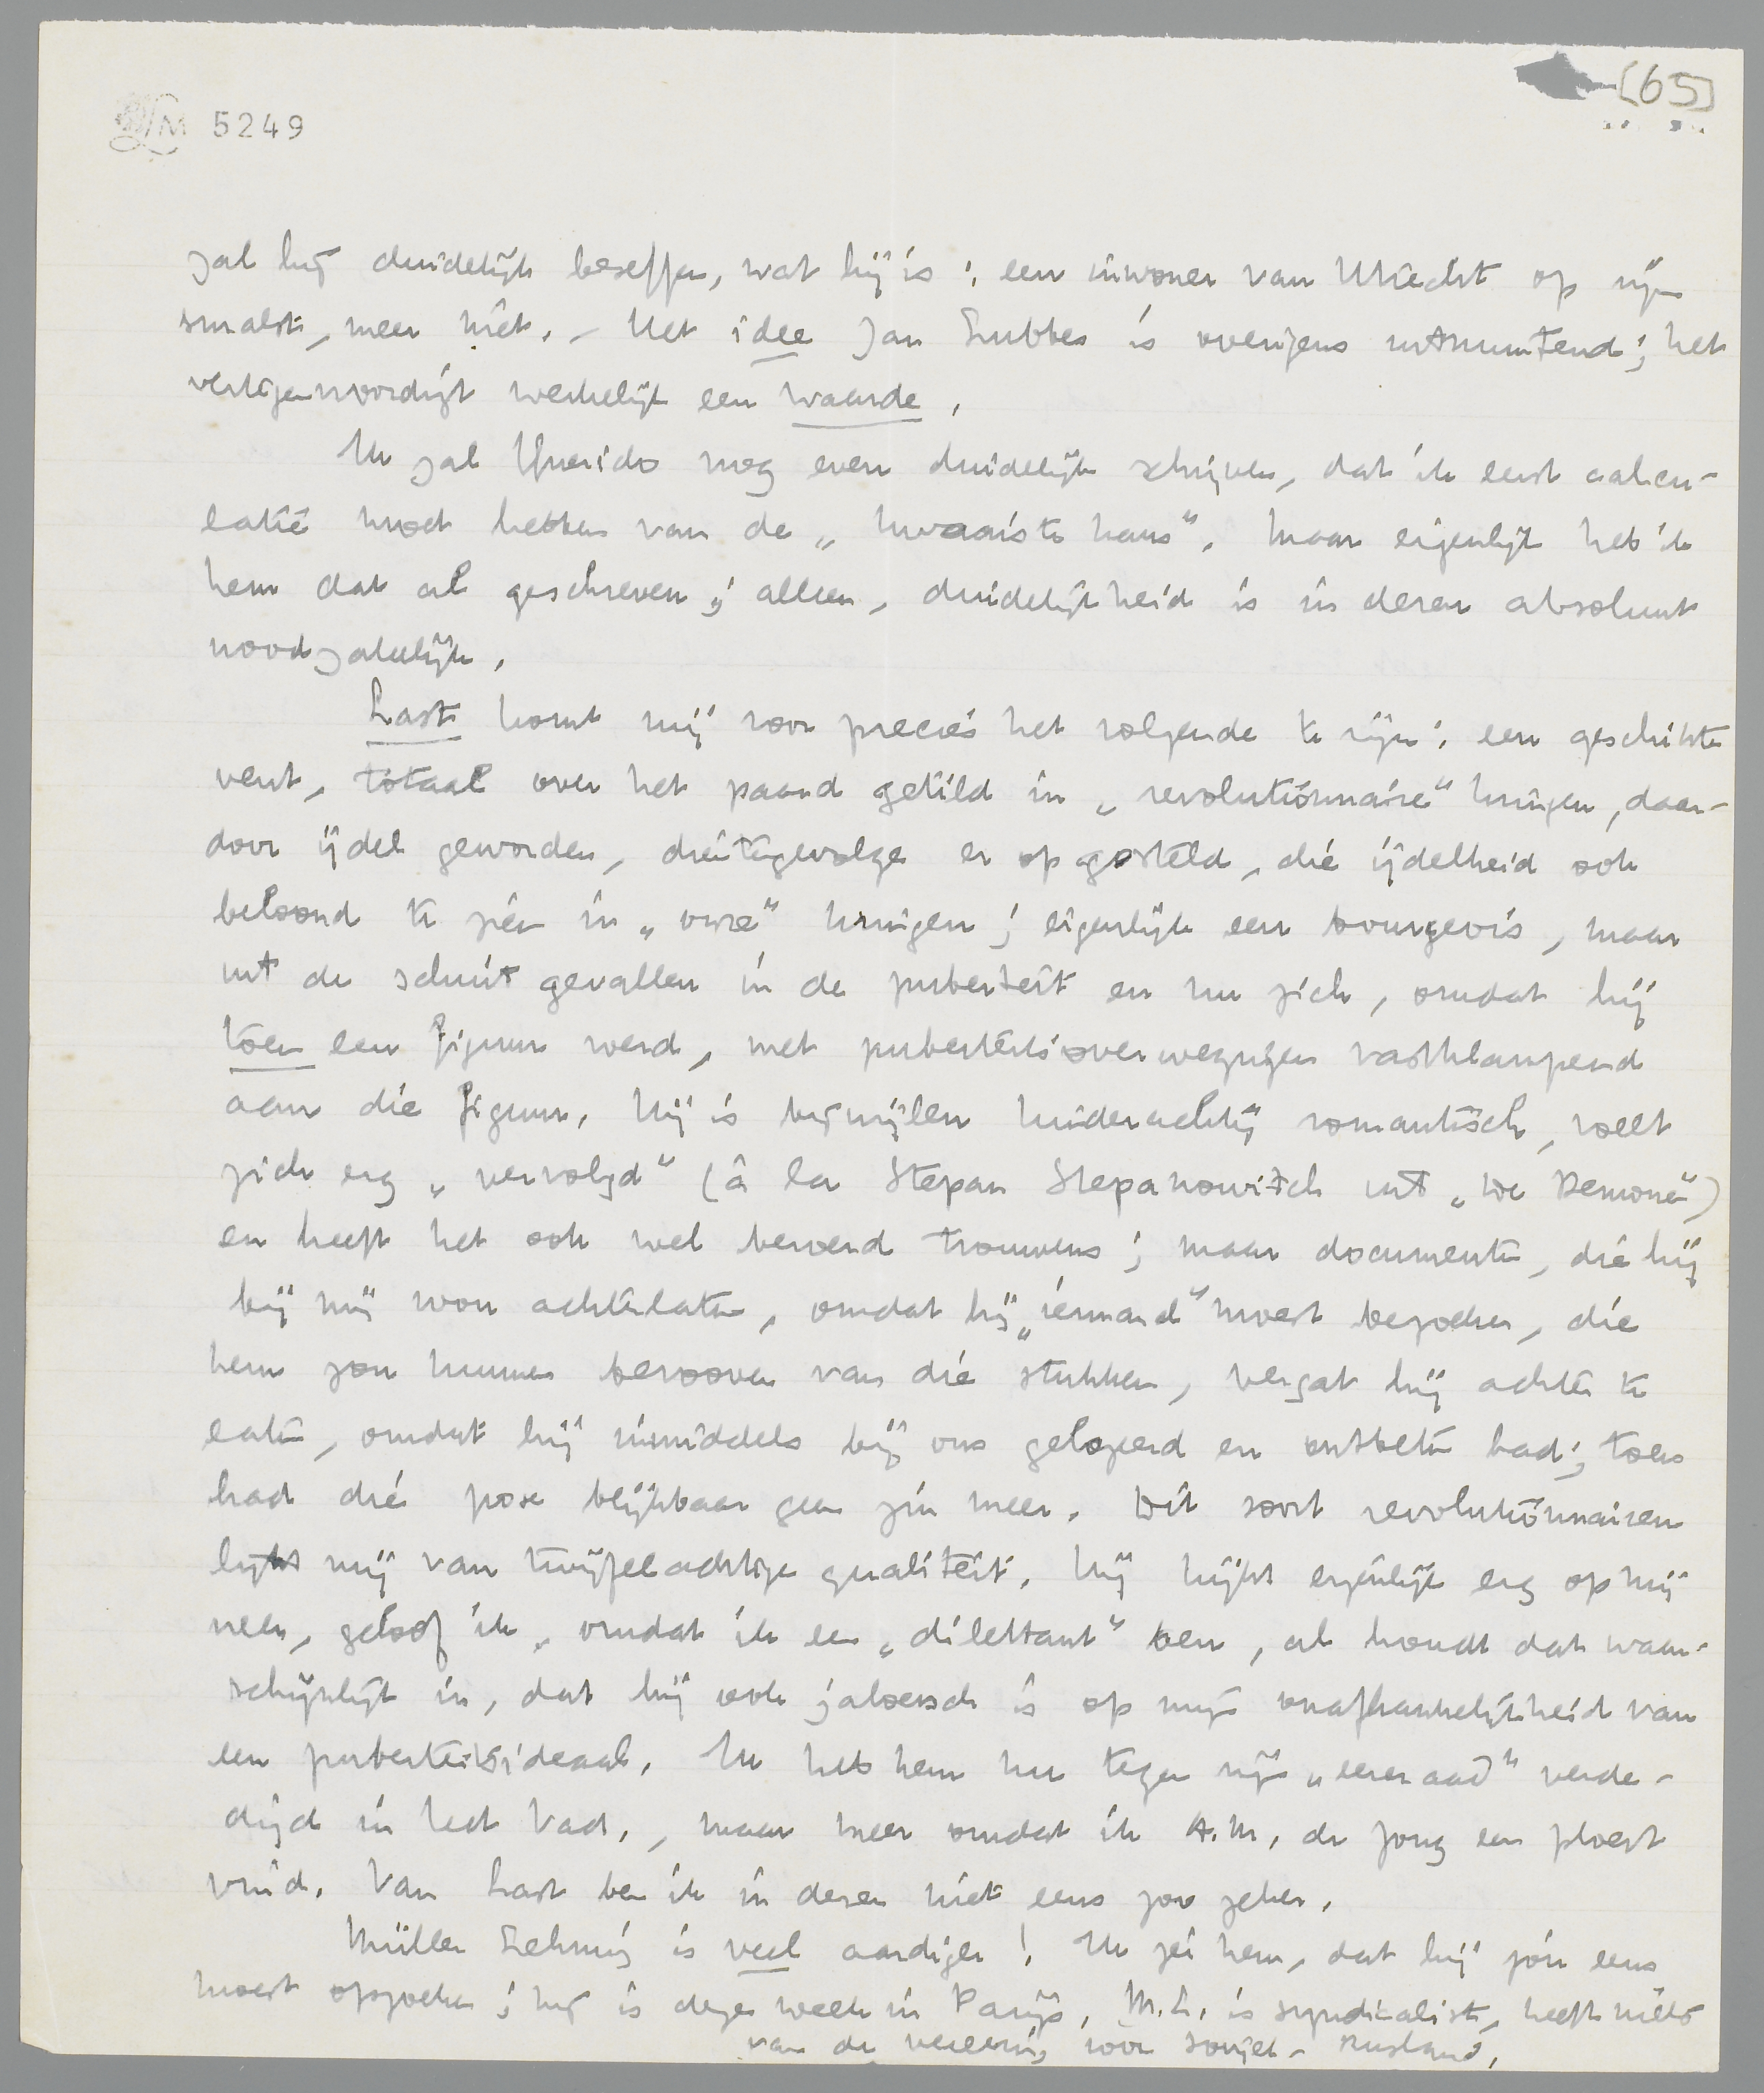 LM 5249
[65]
zal hij duidelijk beseffen, wat hij is: een inwoner van Utrecht op zijn
smalst, meer niet. - Het idee Jan Lubbes is overigens uitmuntend; het
vertegenwoordigt werkelijk een waarde.
Ik zal Querido nog even duidelijk schrijven, dat ik eerst calcu-
latie moet hebben van de „kwaaiste kans". Maar eigenlijk heb ik
hem dat al geschreven; alleen, duidelijkheid is in dezen absoluut
noodzakelijk.
Last komt mij voor precies het volgende te zijn: een geschikte
vent, totaal over het paard getild in „revolutionnaire" kringen, daar-
door ijdel geworden, dientengevolge er op gesteld, die ijdelheid ook
beloond te zien in „onze" kringen; eigenlijk een bourgeois, maar
uit de schuit gevallen in de puberteit en nu zich, omdat hij
toen een figuur werd, met puberteitsoverwegingen vastklampend
aan die figuur. Hij is bij wijlen kinderachtig romantisch, voelt
zich erg „vervolgd" (à la Stepan Stepanowitch uit „De Demonen")
en heeft het ook wel beroerd trouwens; maar documenten, die hij
bij mij wou achterlaten, omdat hij „iemand" moest bezoeken, die
hem zou kunnen berooven van die stukken, vergat hij achter te
laten, omdat hij inmiddels bij ons gelogeerd en ontbeten had; toen
had die pose blijkbaar geen zin meer. Dit soort revolutionnairen
lijkt mij van twijfelachtige qualiteit. Hij kijkt eigenlijk erg op mij
neer, geloof ik, omdat ik een „dilettant" ben, al houdt dat waar-
schijnlijk in, dat hij ook jaloersch is op mijn onafhankelijkheid van
een puberteitsideaal. Ik heb hem nu tegen zijn „eereraad" verde-
digd in Het Vad., maar meer omdat ik A.M. de Jong een ploert
vind. Van Last ben ik in dezen niet eens zoo zeker.
Müller Lehning is veel aardiger! Ik zei hem, dat hij jou eens
moest opzoeken; hij is deze week in Parijs. M.L. is syndicalist, heeft niets
van de vereering voor Sovjet-Rusland.